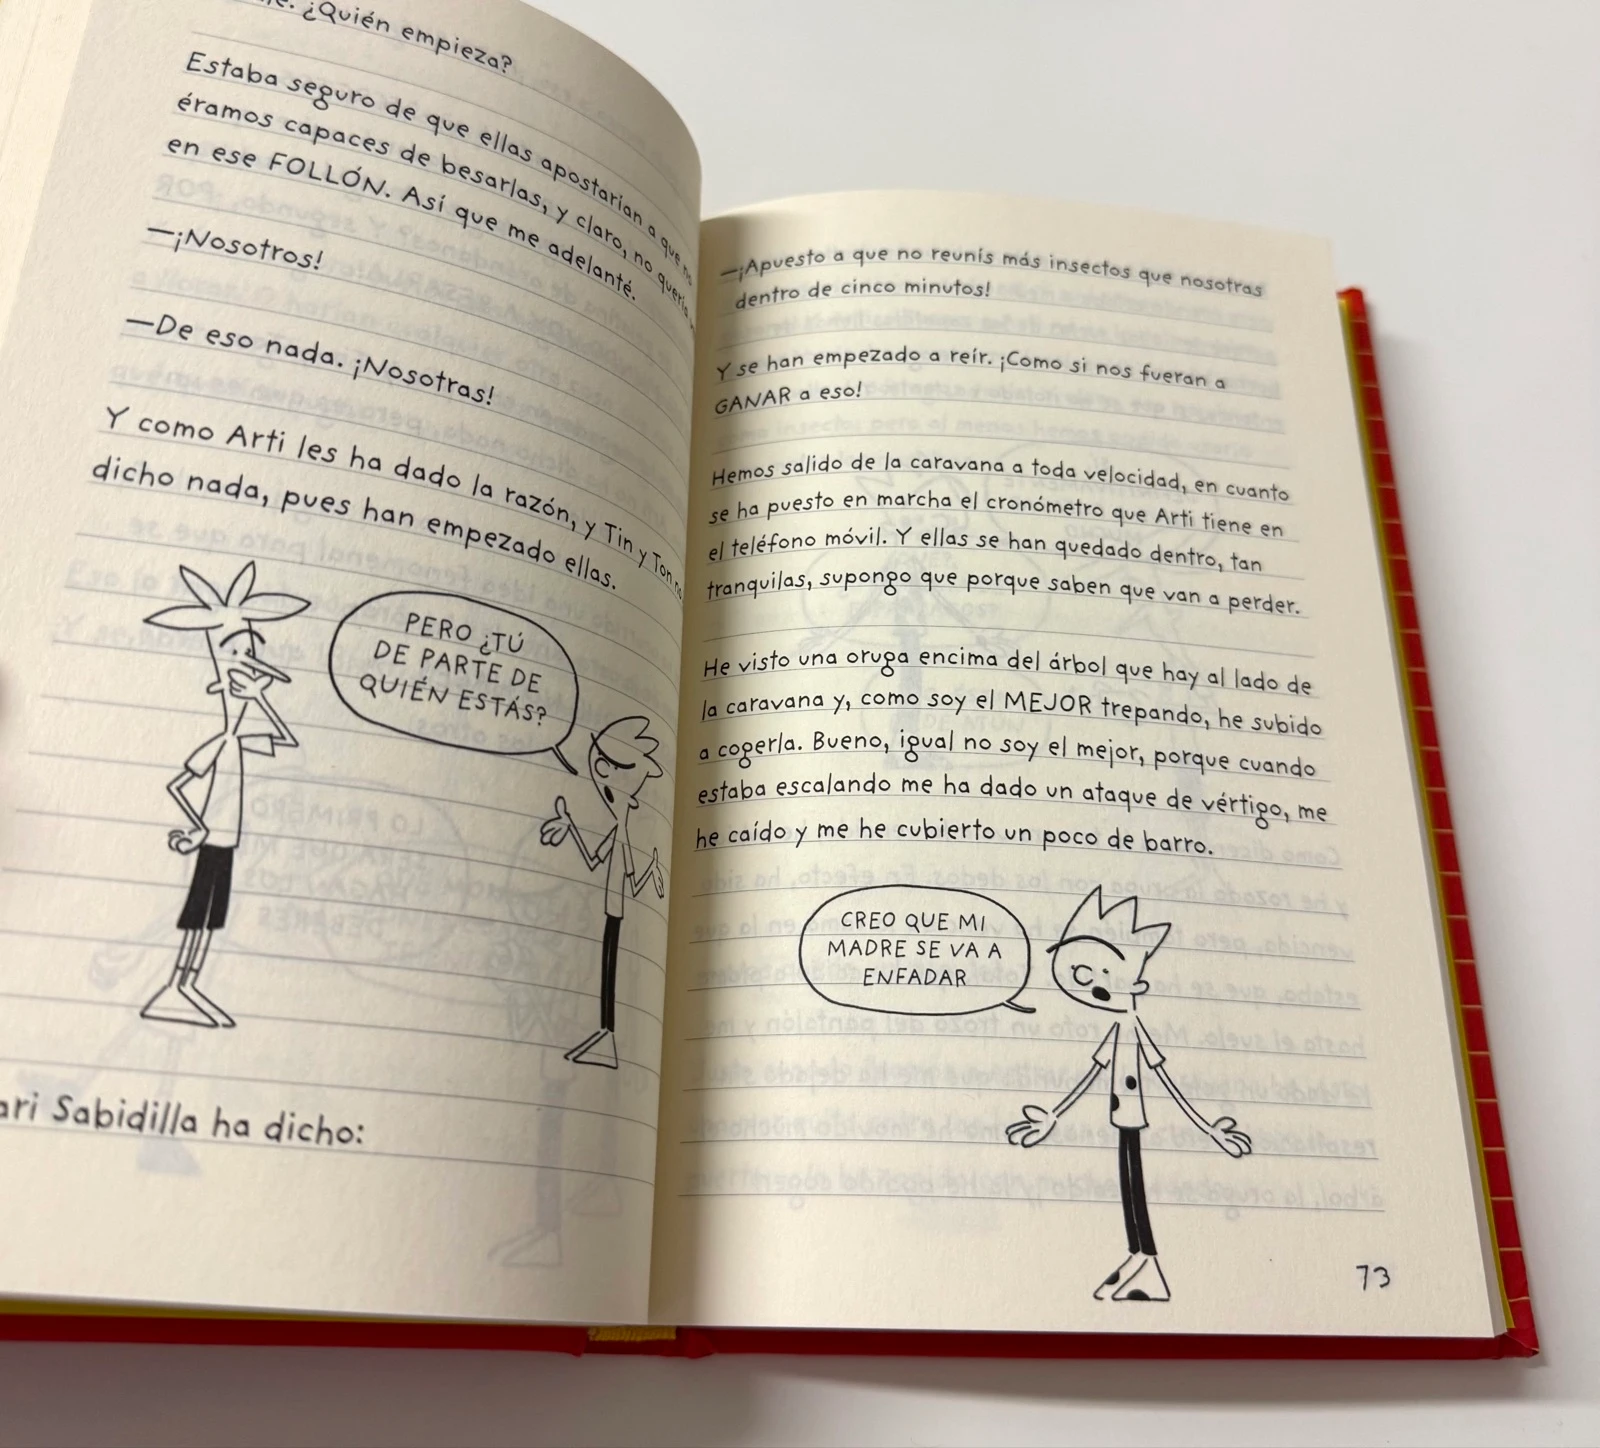 ¿Quién empieza?
Estaba seguro de que ellas apostarían a que no
éramos capaces de besarlas, y claro, no quería
en ese FOLLÓN. Así que me adelanté.
—¡Nosotros!
—De eso nada. ¡Nosotras!
Y como Arti les ha dado la razón, y Tin y Ton no
dicho nada, pues han empezado ellas.
PERO ¿TÚ
DE PARTE DE
QUIÉN ESTÁS?
Sabidilla ha dicho:
—¡Apuesto a que no reunís más insectos que nosotras
dentro de cinco minutos!
Y se han empezado a reír. ¡Como si nos fueran a
GANAR a eso!
Hemos salido de la caravana a toda velocidad, en cuanto
se ha puesto en marcha el cronómetro que Arti tiene en
el teléfono móvil. Y ellas se han quedado dentro, tan
tranquilas, supongo que porque saben que van a perder.
He visto una oruga encima del árbol que hay al lado de
la caravana y, como soy el MEJOR trepando, he subido
a cogerla. Bueno, igual no soy el mejor, porque cuando
estaba escalando me ha dado un ataque de vértigo, me
he caído y me he cubierto un poco de barro.
CREO QUE MI
MADRE SE VA A
ENFADAR
73